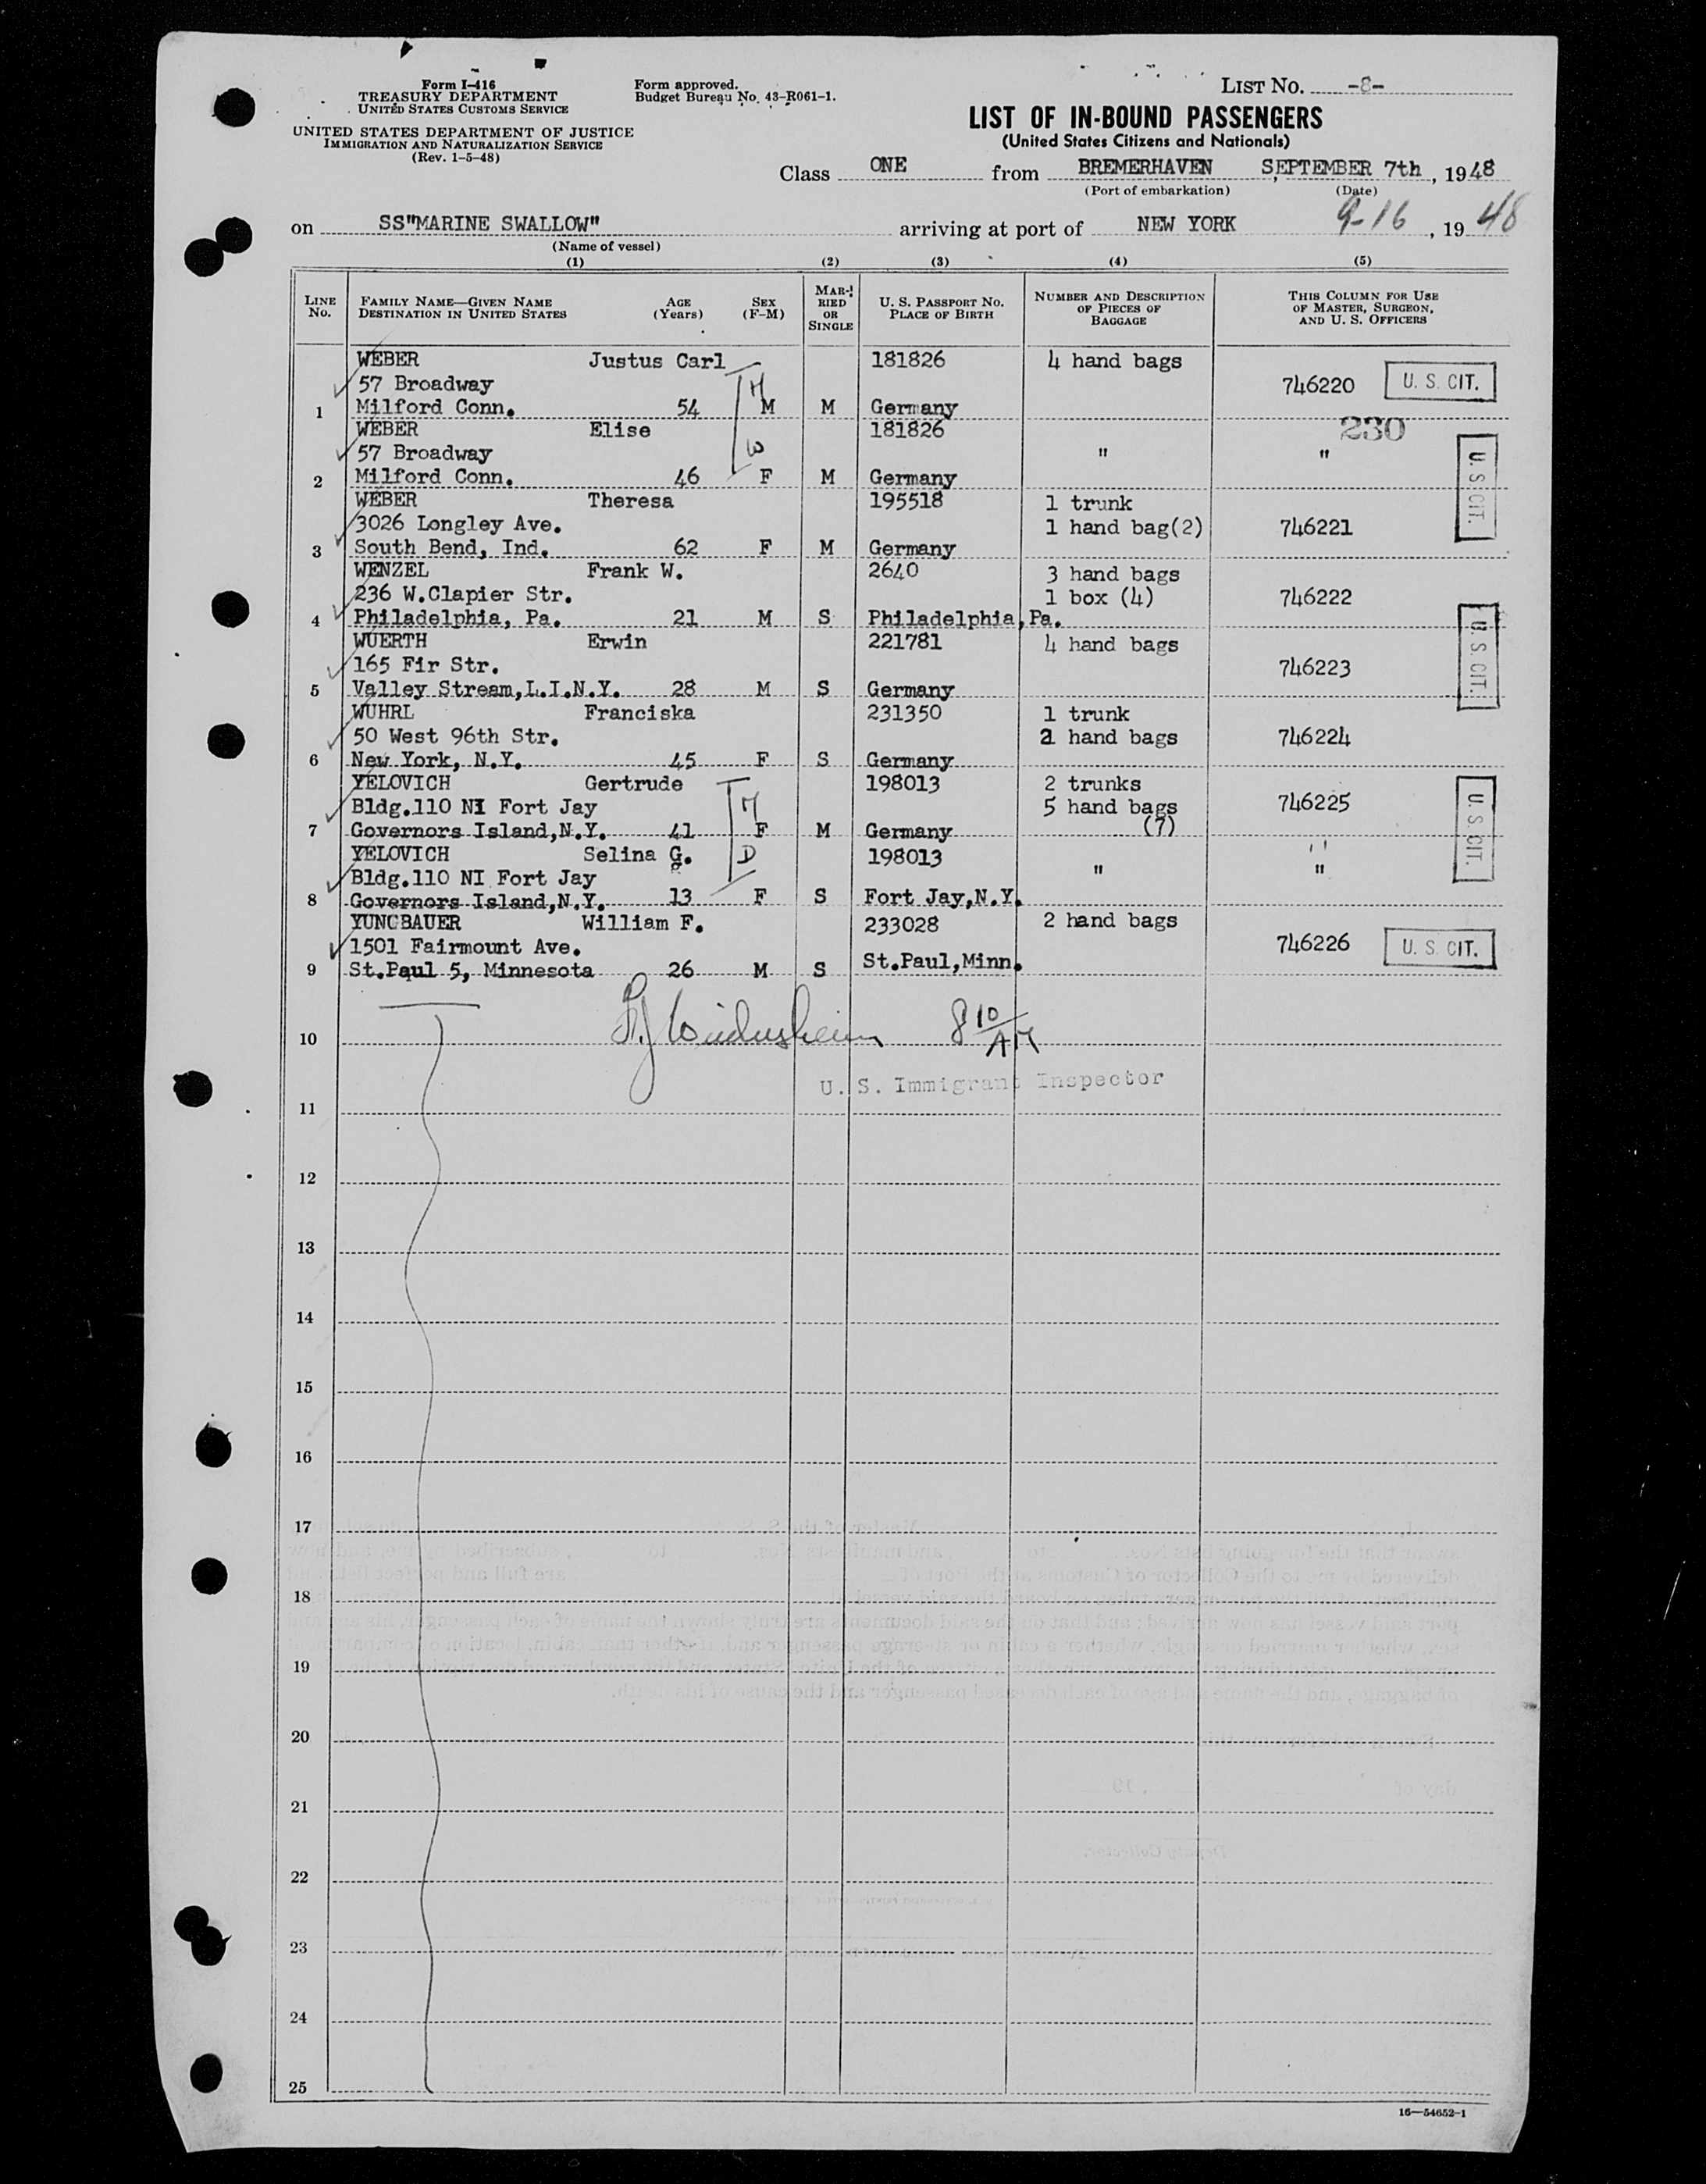 Form I-416
TREASURY DEPARTMENT
UNITED STATES CUSTOMS SERVICE
UNITED STATES DEPARTMENT OF JUSTICE
IMMIGRATION AND NATURALIZATION SERVICE
(Rev. 1-5-48)
Form approved.
Budget Bureau No. 43-R061-1.
LIST NO. -8-
LIST OF IN-BOUND PASSENGERS
(United States Citizens and Nationals)
Class ONE from BREMERHAVEN SEPTEMBER 7th, 1948
(Port of embarkation) (Date)
on SS"MARINE SWALLOW" arriving at port of NEW YORK 9-16, 1948
(Name of vessel)
(1) (2) (3) (4) (5)
LINE NO. FAMILY NAME—GIVEN NAME DESTINATION IN UNITED STATES AGE (Years) SEX (F-M) MARRIED OR SINGLE U. S. PASSPORT NO. PLACE OF BIRTH NUMBER AND DESCRIPTION OF PIECES OF BAGGAGE THIS COLUMN FOR USE OF MASTER, SURGEON, AND U. S. OFFICERS
WEBER Justus Carl 181826 4 hand bags
57 Broadway H 746220 U. S. CIT.
1 Milford Conn. 54 M M Germany
WEBER Elise 181826 230
57 Broadway W " " U. S. CIT.
2 Milford Conn. 46 F M Germany
WEBER Theresa 195518 1 trunk
3026 Longley Ave. 1 hand bag(2) 746221
3 South Bend, Ind. 62 F M Germany
WENZEL Frank W. 2640 3 hand bags
236 W.Clapier Str. 1 box (4) 746222
4 Philadelphia, Pa. 21 M S Philadelphia,Pa.
WUERTH Erwin 221781 4 hand bags
165 Fir Str. 746223 U. S. CIT.
5 Valley Stream,L.I.N.Y. 28 M S Germany
WUHRL Franciska 231350 1 trunk
50 West 96th Str. 2 hand bags 746224
6 New York, N.Y. 45 F S Germany
YELOVICH Gertrude 198013 2 trunks
Bldg.110 NI Fort Jay M 5 hand bags 746225
7 Governors Island,N.Y. 41 F M Germany (7) U. S. CIT.
YELOVICH Selina G. D 198013 "
Bldg.110 NI Fort Jay " "
8 Governors Island,N.Y. 13 F S Fort Jay,N.Y.
YUNGBAUER William F. 233028 2 hand bags
1501 Fairmount Ave. 746226 U. S. CIT.
9 St.Paul 5, Minnesota 26 M S St.Paul,Minn.
10 8 10/AM
U. S. Immigrant Inspector
11
12
13
14
15
16
17
18
19
20
21
22
23
24
25
16—54652-1